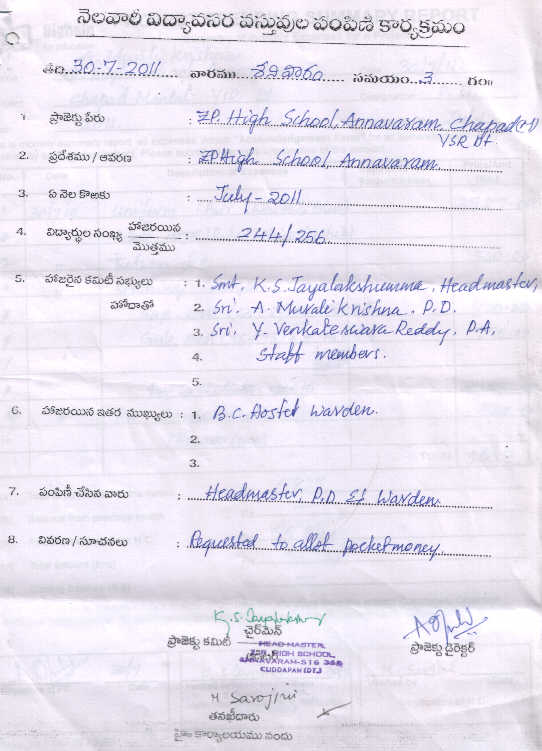 నెలవారి విద్యావసర వస్తువుల పంపిణి కార్యక్రమం
తేది 30-7-2011 వారము శనివారం సమయం 3 గం॥
1 ప్రాజెక్టు పేరు : ZP. High School, Annavaram, Chapad(M)
YSR Dt.
2. ప్రదేశము / ఆవరణ : ZP High School, Annavaram.
3. ఏ నెల కొఱకు : July - 2011
4. విద్యార్థుల సంఖ్య హాజరయిన / మొత్తము : 244/256
5. హాజరైన కమిటీ సభ్యులు : 1. Smt. K.S. Jayalakshumma, Headmaster,
హోదాతో 2. Sri. A. Murali Krishna. P.D.
3. Sri. Y. Venkateswara Reddy. P.A,
4. Staff members.
5.
6. హాజరయిన ఇతర ముఖ్యులు : 1. B.C. Hostel Warden.
2.
3.
7. పంపిణీ చేసిన వారు : Headmaster, P.D. & Warden.
8. వివరణ / సూచనలు : Requested to allot pocketmoney.
K.S. Jayalakshu
చైర్‌మేన్
ప్రాజెక్టు కమిటీ
HEAD-MASTER,
HIGH SCHOOL,
ANNAVARAM-516
CUDDAPAH (DT.)
ప్రాజెక్టు డైరెక్టర్
M Sarojini
తనఖీదారు
హైం కార్యాలయము నందు